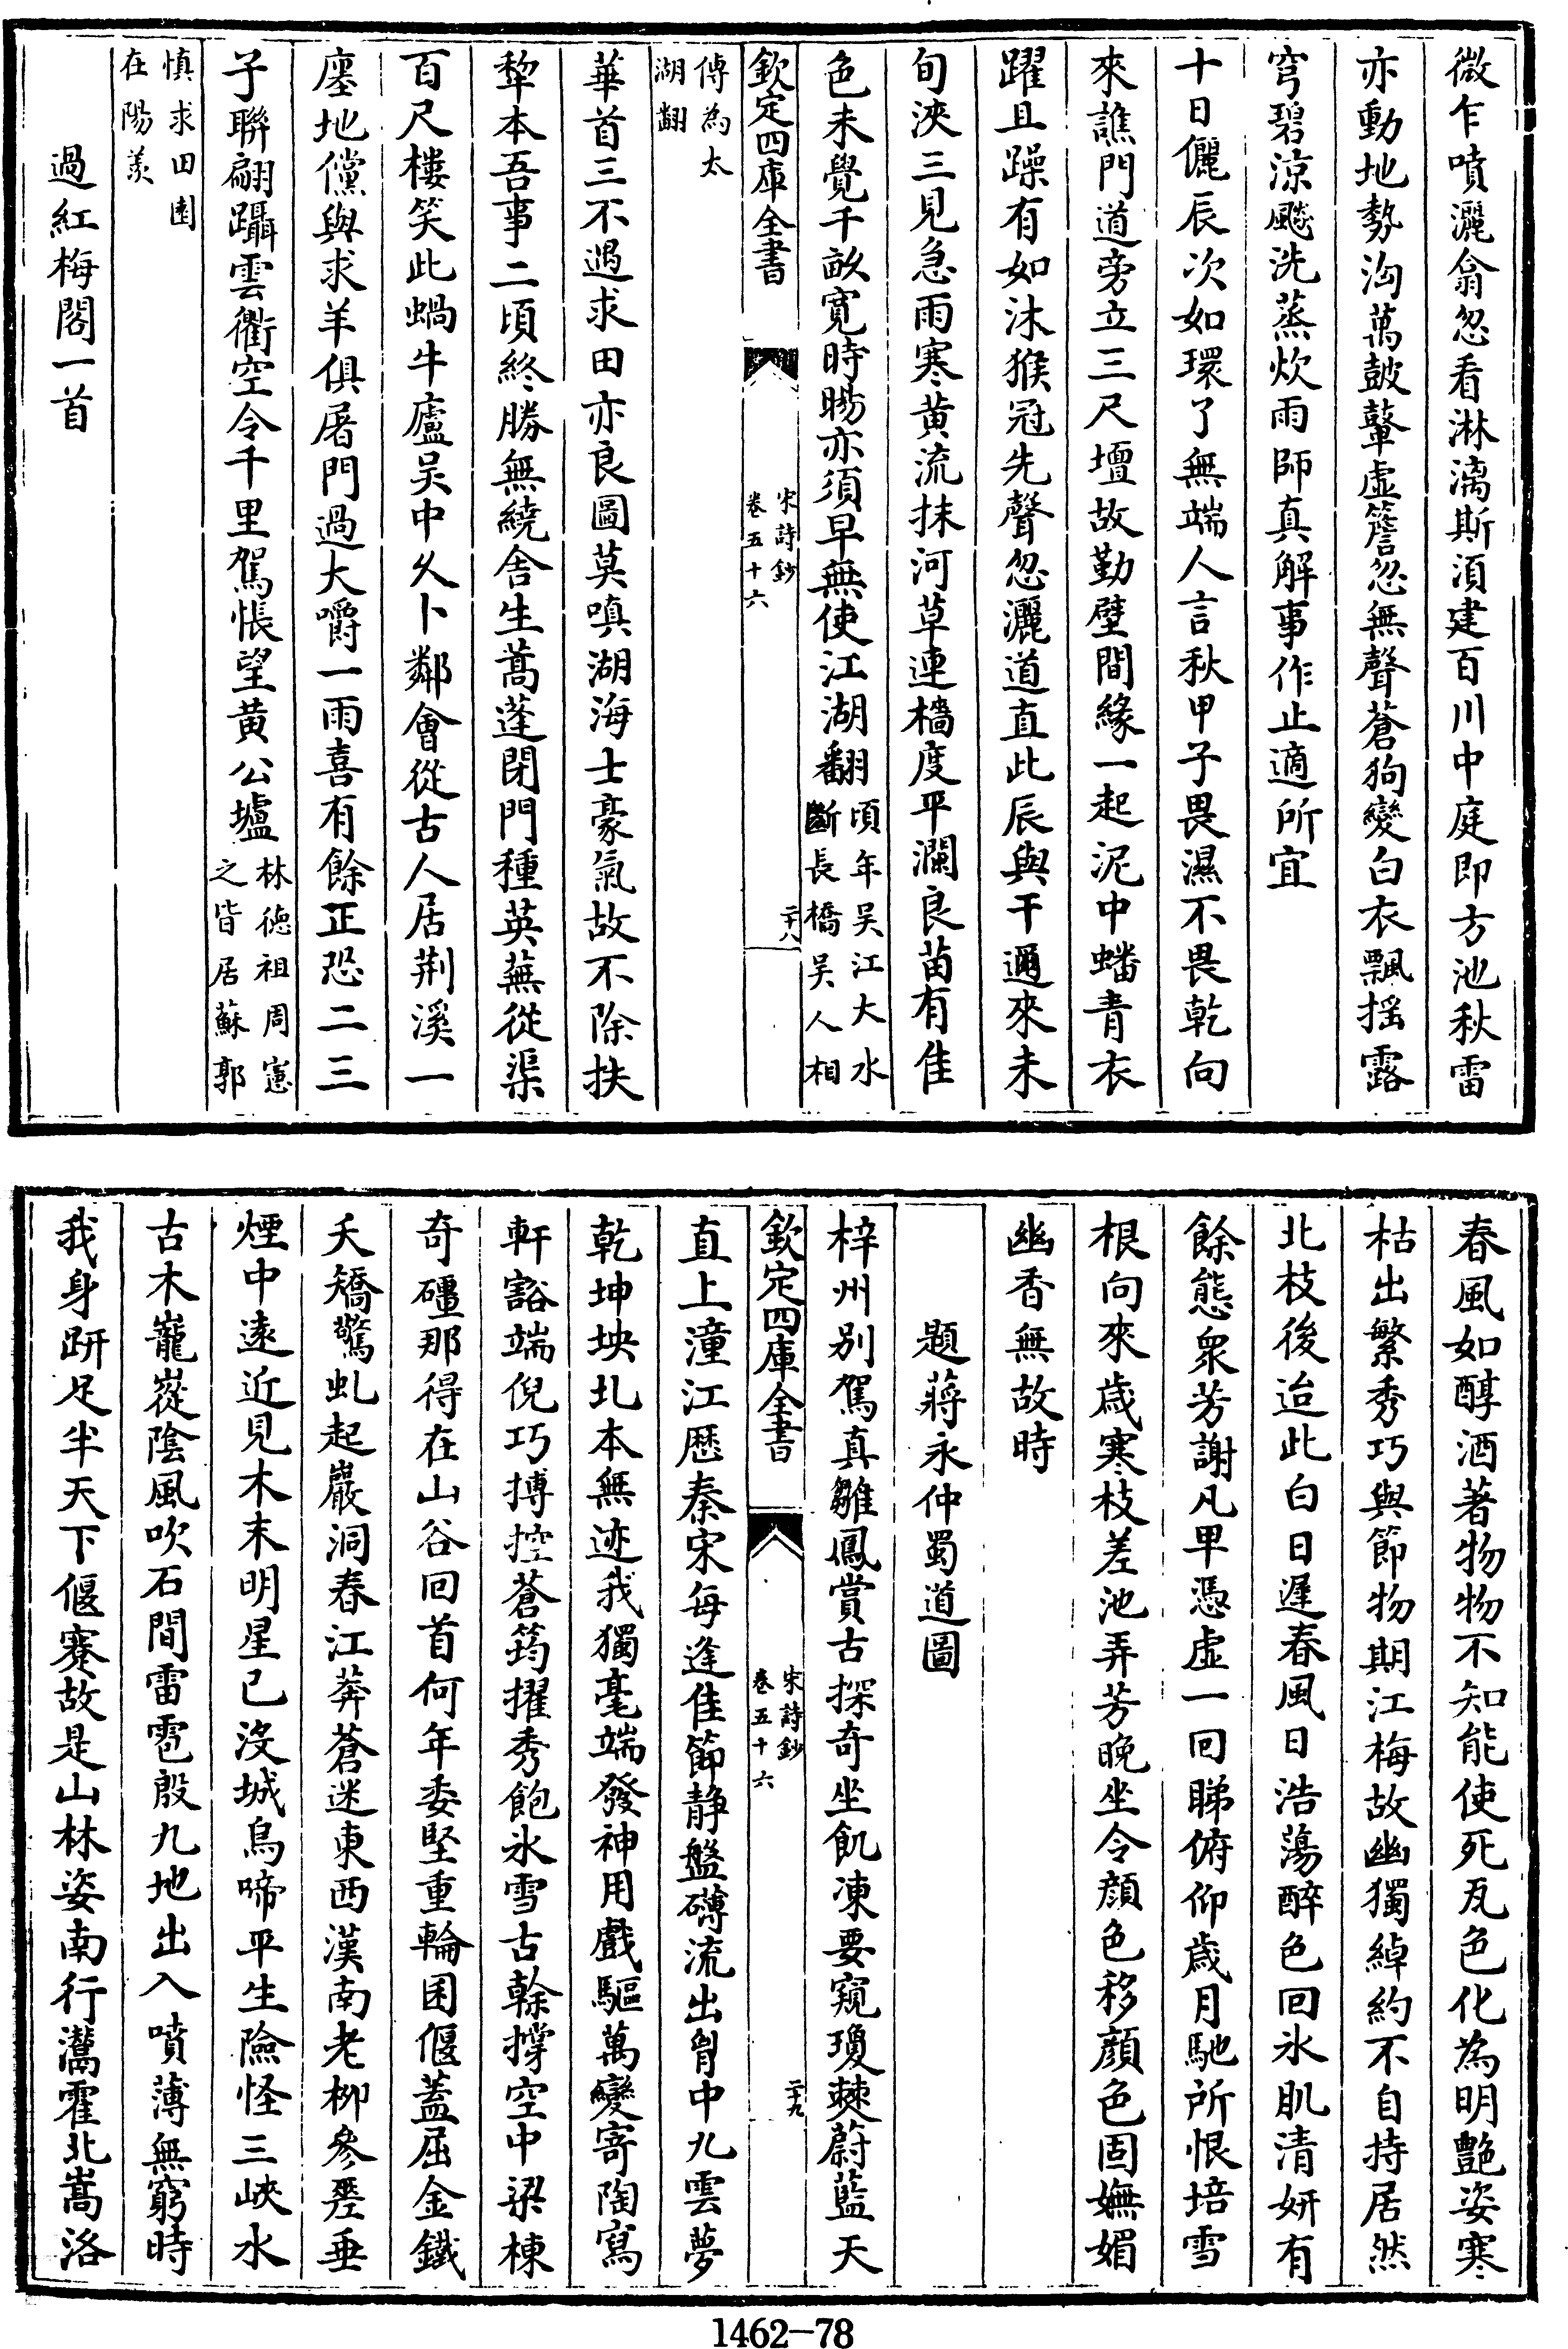 微乍噴灑翕忽看淋漓斯須建百川中庭即方池秋雷
亦動地勢洶萬鼓鼙虛簷忽無聲蒼狗變白衣飄搖露
穹碧涼飈洗蒸炊雨師真解事作止適所宜
十日儷辰次如環了無端人言秋甲子畏濕不畏乾向
來譙門道旁立三尺壇故勤壁間緣一起泥中蟠青衣
躍且躁有如沐猴冠先聲忽灑道直此辰與干邇來未
旬浹三見急雨寒黄流抹河草連檣度平瀾良苗有佳
色未覺千畝寛時暘亦須早無使江湖翻頃年吴江大水
斷長橋吴人相
欽定四庫全書
宋詩鈔
卷五十六
二十八
傳為太
湖翻
華首三不遇求田亦良圖莫嗔湖海士豪氣故不除扶
犂本吾事二頃終勝無繞舍生蒿蓬閉門種英蕪從渠
百尺樓笑此蝸牛廬吴中久卜鄰會從古人居荆溪一
廛地儻與求羊俱屠門過大嚼一雨喜有餘正恐二三
子聯翩躡雲衢空令千里駕悵望黄公壚林德祖周憲
之皆居蘇郭
慎求田園
在陽羨
過紅梅閣一首
春風如醇酒著物物不知能使死灰色化為明艶姿寒
枯出繁秀巧與節物期江梅故幽獨綽約不自持居然
北枝後迨此白日遲春風日浩蕩醉色回氷肌清妍有
餘態衆芳謝凡卑憑虛一回睇俯仰歳月馳所恨培雪
根向來歳寒枝差池弄芳晚坐令顔色移顔色固嫵媚
幽香無故時
題蔣永仲蜀道圖
梓州别駕真雛鳳賞古探奇坐飢凍要窺瓊𣗥蔚藍天
欽定四庫全書
宋詩鈔
卷五十六
二十九
直上潼江歴秦宋每逢佳節静盤礴流出胷中九雲夢
乾坤坱圠本無迹我獨毫端發神用戲驅萬變寄陶寫
軒豁端倪巧搏控蒼筠擢秀飽氷雪古榦撐空中梁棟
奇礓那得在山谷回首何年委堅重輪囷偃蓋屈金鐵
夭矯驚虬起巖洞春江莽蒼迷東西漢南老栁參差垂
煙中遠近見木末明星已沒城烏啼平生險怪三峽水
古木巃嵸陰風吹石間雷雹殷九地出入噴薄無窮時
我身趼足半天下偃蹇故是山林姿南行灊霍北嵩洛
1462-78